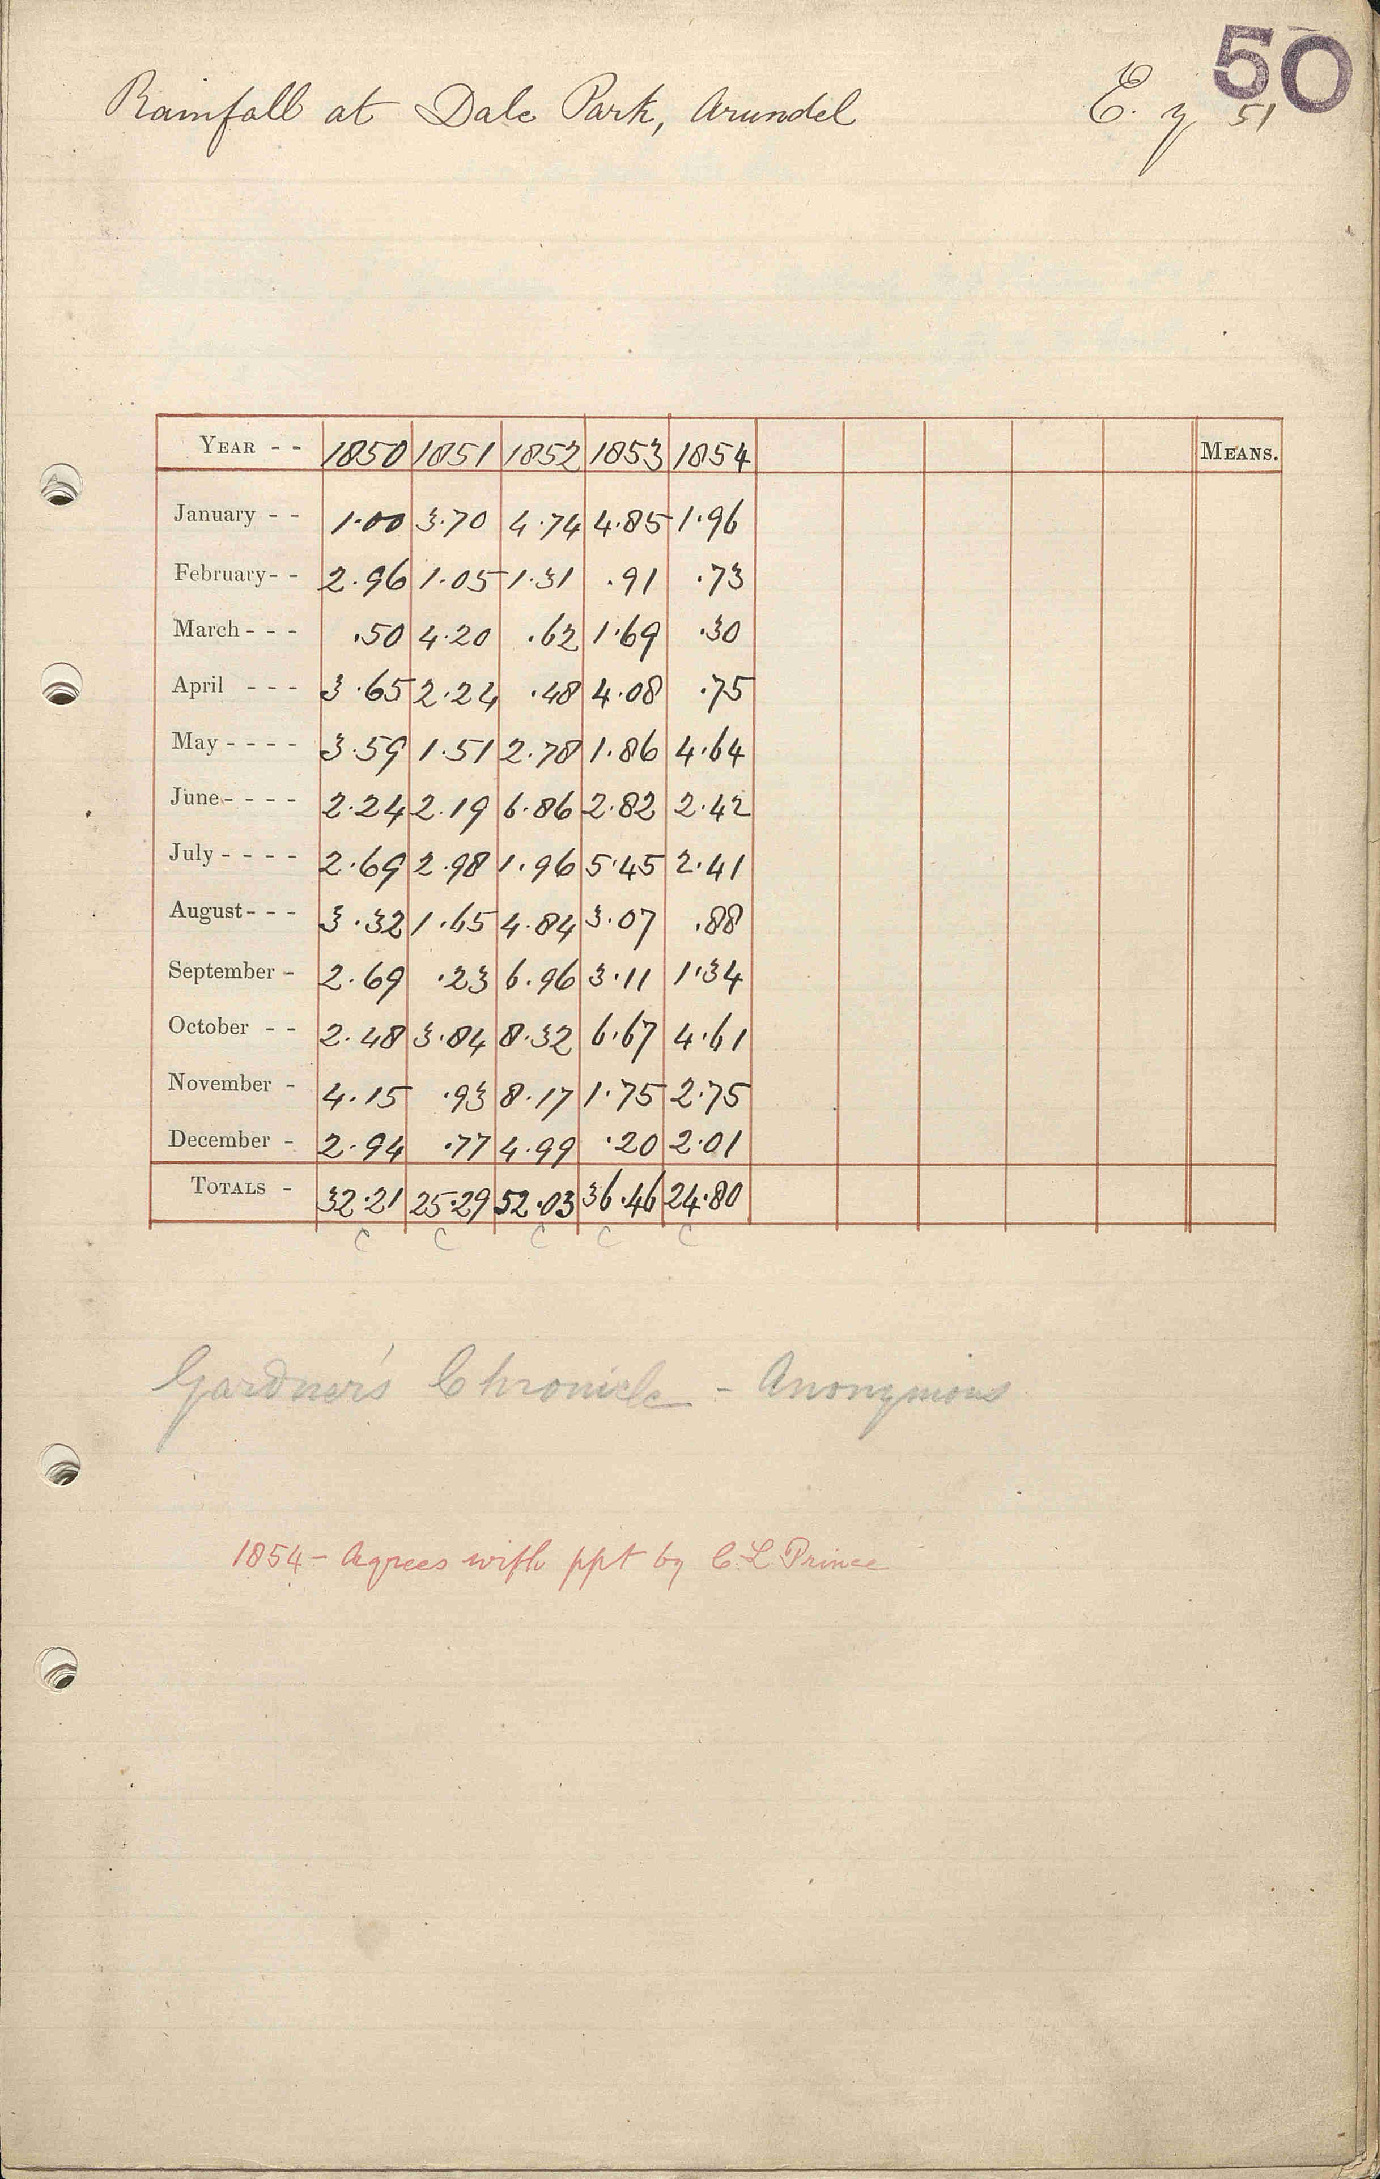 50
Rainfall at Dale Park, Arundel E. y 51
YEAR - - 1850 1851 1852 1853 1854 MEANS.
January - - 1.00 3.70 4.74 4.85 1.96
February - - 2.96 1.05 1.31 .91 .73
March - - - .50 4.20 .62 1.69 .30
April - - - 3.65 2.24 .48 4.08 .75
May - - - - 3.59 1.51 2.78 1.86 4.64
June - - - - 2.24 2.19 6.86 2.82 2.42
July - - - - 2.69 2.98 1.96 5.45 2.41
August - - - 3.32 1.65 4.84 3.07 .88
September - 2.69 .23 6.96 3.11 1.34
October - - 2.48 3.84 8.32 6.67 4.61
November - 4.15 .93 8.17 1.75 2.75
December - 2.94 .77 4.99 .20 2.01
TOTALS - 32.21 25.29 52.03 36.46 24.80
C C C C C
Gardner's Chronicle - Anonymous
1854 - Agrees with ppt by C. L. Prince